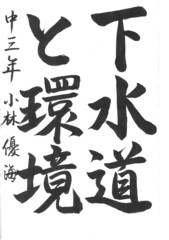 下水道
と環境
中三年 小林優海